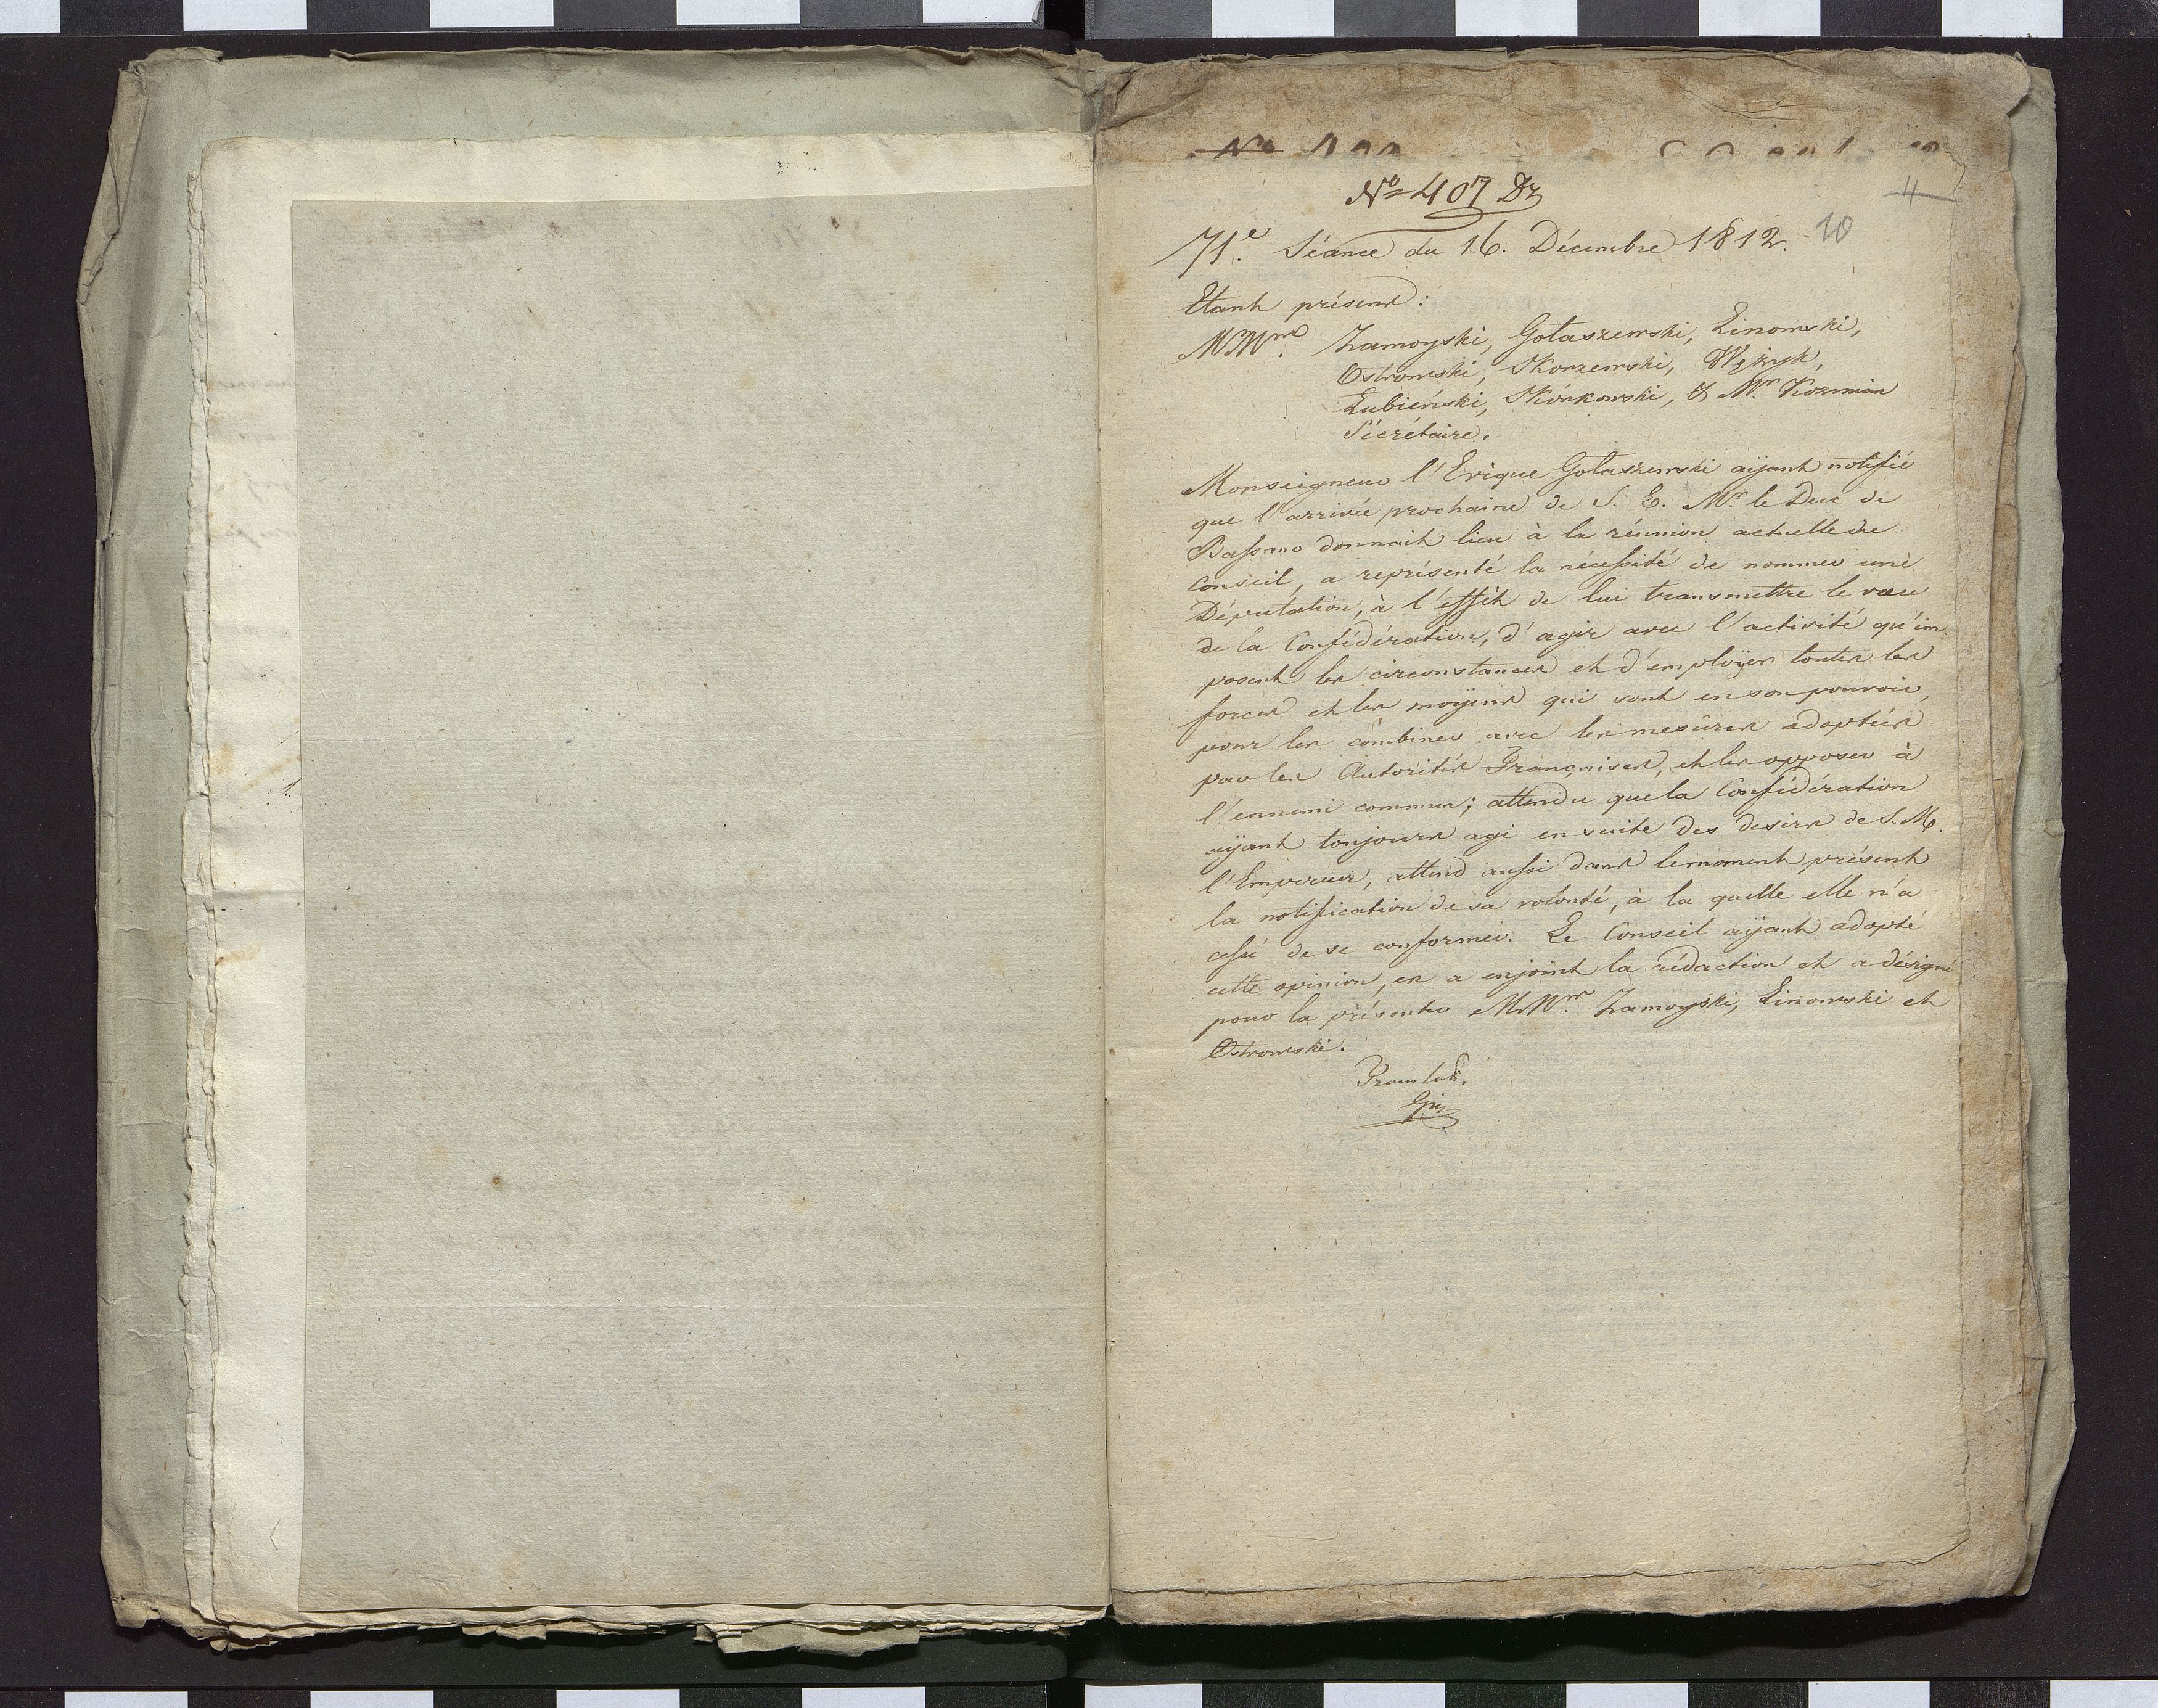 Nº 407 Dz
11
10
71.e Séance du 16. Décembre 1812.
Etant présens:
MMrs. Zamoyski, Gołaszewski, Linowski,
Ostrowski, Skorzewski, Wężyk,
Łubieński, Skórkowski, & Mr. Kozmian
Sécrétaire.
Monseigneur l'Evêque Gołaszewski aÿant notifié
que l'arrivée prochaine de S. E. Mr. le Duc de
Bassano donnait lieu à la réunion actuelle du
Conseil, a représenté la nécessité de nommer une
Députation, à l'effèt de lui transmettre le vœu
de la Confédération, d'agir avec l'activité qu'im-
posent les circonstances et d'emploÿer toutes les
forces et les moÿens qui sont en son pouvoir,
pour les combiner avec les mesûres adoptées
par les Autorités Françaises, et les opposer à
l'ennemi commun; attendu que la Confédération
aÿant toujours agi en suite des desirs de S. M.
l'Empereur, attend aussi dans le moment présent
la notification de sa volonté, à la quelle elle n'a
cessé de se conformer. Le Conseil aÿant adopté
cette opinion, en a enjoint la rédaction et a désigné
pour la présenter MMrs. Zamoyski, Linowski et
Ostrowski.